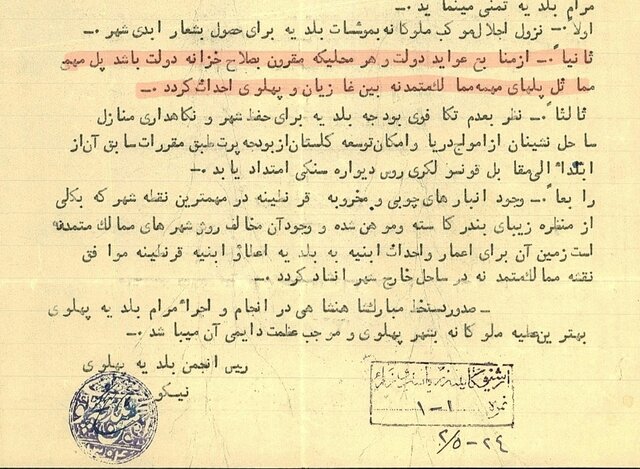 مرام بلدیه تمنی مینماید .—
اولاً .— نزول اجلال موکب ملوکانه بموسسات بلدیه برای حصول بشعار ابدی شهر .—
ثانیاً .— ازمنابع عواید دولت و هر محلیکه مقرون بصلاح خزانه دولت باشد پل مهم
مماثل پلهای مهمه ممالک متمدنه بین غازیان و پهلوی احداث گردد .—
ثالثاً .— نظر بعدم تکافوی بودجه بلدیه برای حفظ شهر و نگاهداری منازل
ساحل نشینان از امواج دریا و امکان توسعه گلستان از بودجه پرت طبق مقررات سابق آن از
ابتداء الی مقابل قونسولگری روس دیواره سنگی امتداد یابد .—
رابعاً .— وجود انبارهای چوبی و مخروبه قرنطینه در مهمترین نقطه شهر که بکلی
از منظره زیبای بندر کاسته و موهن شده و وجود آن مخالف روش شهرهای ممالک متمدنه
است زمین آن برای اعمار و احداث ابنیه به بلدیه اعطا و ابنیه قرنطینه موافق
نقشه ممالک متمدنه در ساحل خارج شهر ایجاد گردد .—
— صدور دستخط مبارک شاهنشاهی در انجام و اجراء مرام بلدیه پهلوی
بهترین عطیه ملوکانه بشهر پهلوی و موجب عظمت دایمی آن میباشد .—
رییس انجمن بلدیه پهلوی
نیکو
نمره ۱-۱
۲۴-۵/۲